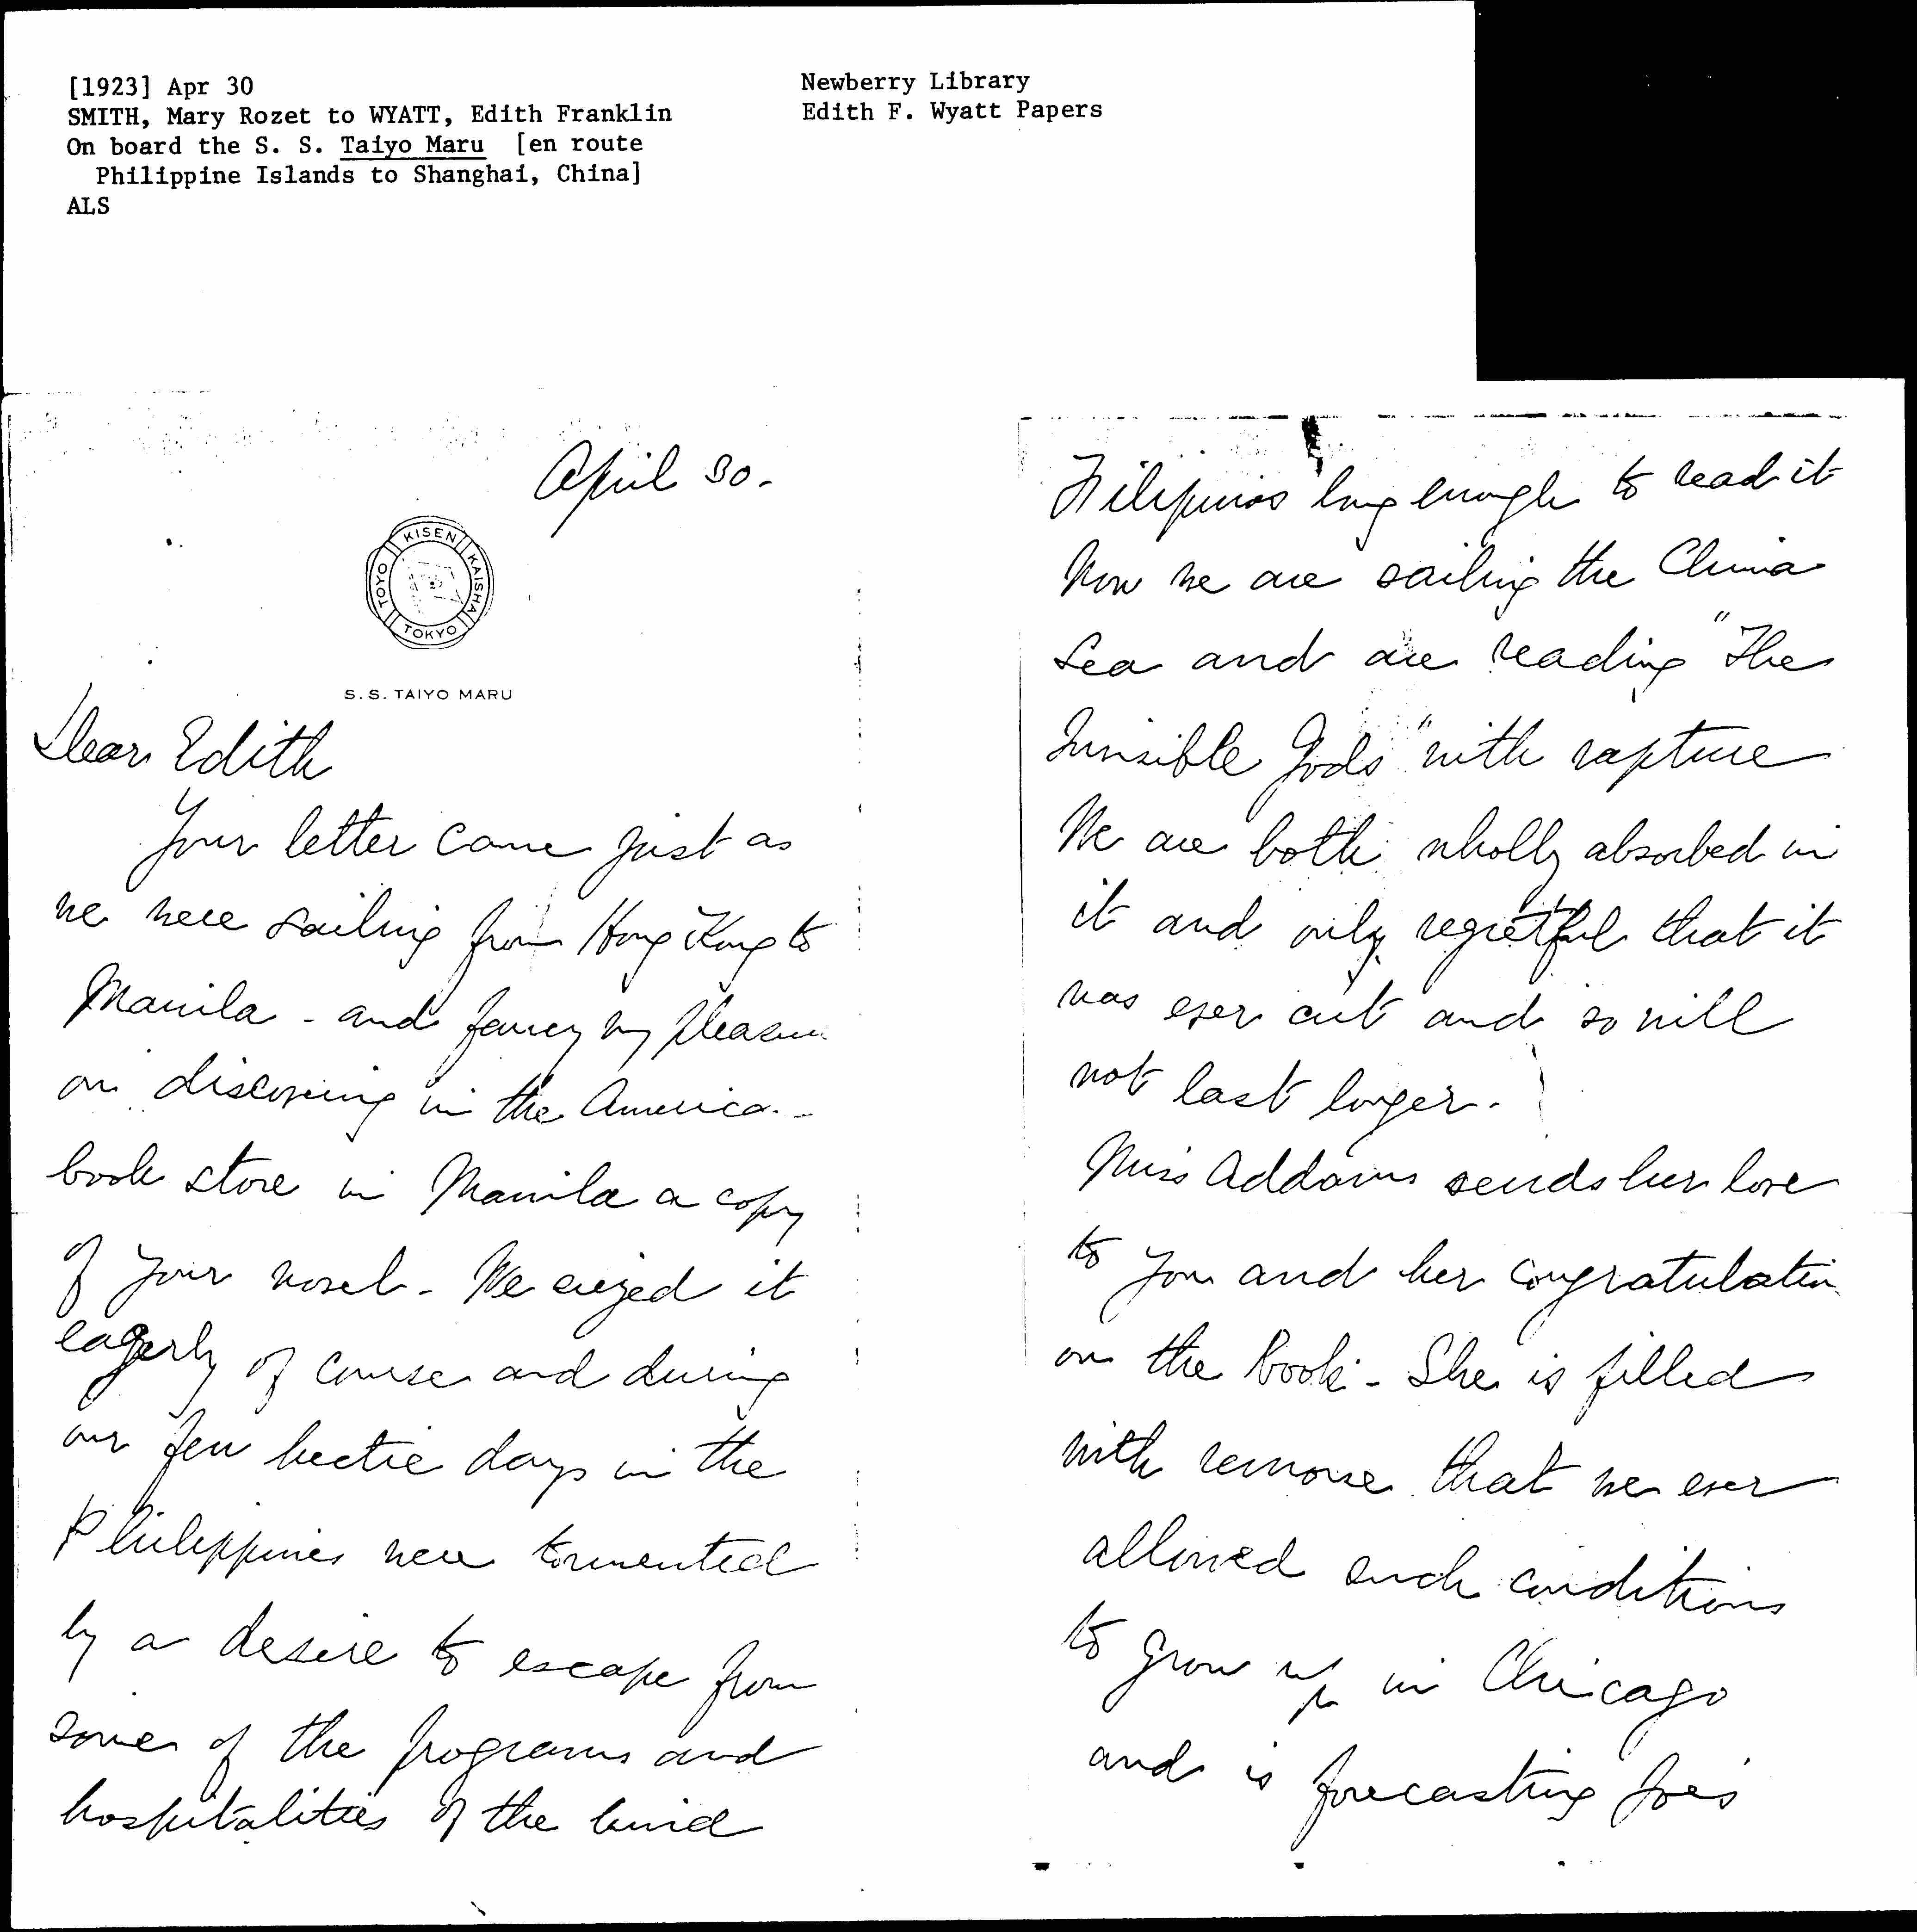 [1923] Apr 30
SMITH, Mary Rozet to WYATT, Edith Franklin
On board the S. S. Taiyo Maru [en route
Philippine Islands to Shanghai, China]
ALS
Newberry Library
Edith F. Wyatt Papers
April 30.
TOYO KISEN KAISHA
TOKYO
S.S. TAIYO MARU
Dear Edith
Your letter came just as
we were sailing from Hong Kong to
Manila - and fancy my pleasure
on discovering in the America
book store in Manila a copy
of your novel - We siezed it
eagerly of course and during
our few hectic days in the
Philippines were tormented
by a desire to escape from
some of the programs and
hospitalities of the kind
Filipinos long enough to read it
Now we are sailing the China
Sea and are reading "The
Invisible Gods" with rapture
We are both wholly absorbed in
it and only regretful that it
was ever cut and so will
not last longer.
Miss Addams sends her love
to you and her congratulation
on the book - She is filled
with remorse that we ever
allowed such conditions
to grow up in Chicago
and is forecasting Joe's